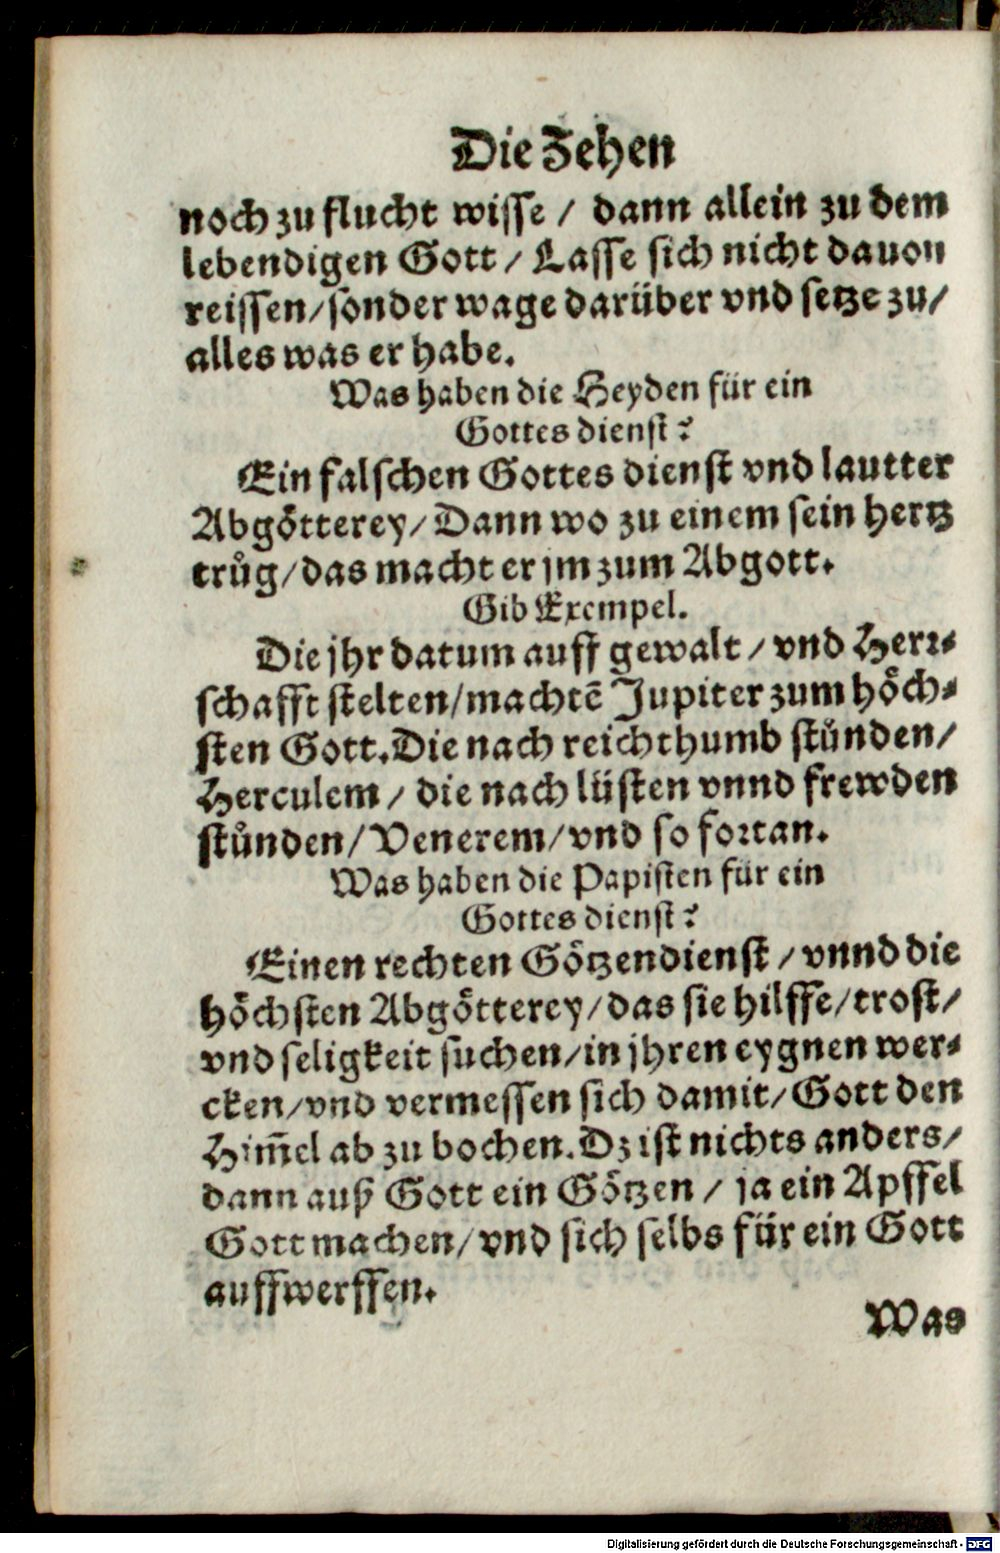 Die Zehen
noch zu flucht wisse / dann allein zu dem
lebendigen Gott / Lasse sich nicht dauon
reissen/sonder wage darüber vnd setze zu/
alles was er habe.
Was haben die Heyden für ein
Gottes dienst?
Ein falschen Gottes dienst vnd lautter
Abgoͤtterey/Dann wo zu einem sein hertz
truͦg/das macht er jm zum Abgott.
Gib Exempel.
Die jhr datum auff gewalt / vnd Herr⸗
schafft stelten/machtē Jupiter zum hoͤch⸗
sten Gott.Die nach reichthumb stuͦnden/
Herculem / die nach lüsten vnnd frewden
stuͦnden/Venerem/vnd so fortan.
Was haben die Papisten für ein
Gottes dienst?
Einen rechten Goͤtzendienst / vnnd die
hoͤchsten Abgoͤtterey/das sie hilffe/trost/
vnd seligkeit suchen/in jhren eygnen wer⸗
cken/vnd vermessen sich damit/Gott den
Him̄el ab zu bochen.Dz ist nichts anders/
dann auß Gott ein Goͤtzen / ja ein Apffel
Gott machen/vnd sich selbs für ein Gott
auffwerffen.
Was
Digitalisierung gefördert durch die Deutsche Forschungsgemeinschaft - DFG